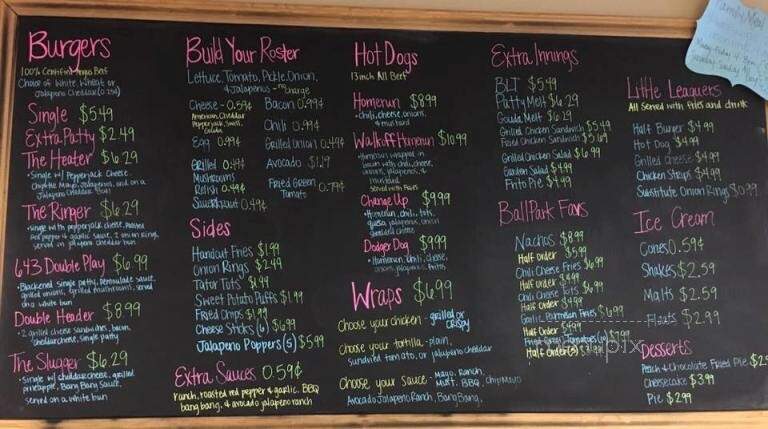 Burgers
100% Certified Angus Beef
Choice of White, Wheat or
Jalapeno Cheddar
Single $5.49
Extra Patty $2.49
The Heater $6.29
Single w/ Pepperjack Cheese,
Chipotle Mayo, Jalapenos, and on a
Jalapeno Cheddar Bun
The Ringer $6.29
Single with pepperjack cheese, roasted
red pepper & garlic sauce, 2 onion rings,
served on jalapeno cheddar bun
643 Double Play $6.99
Blackened single patty,
grilled onions, grilled mushrooms, served
on a white bun
Double Header $8.99
2 grilled cheese sandwiches, bacon,
cheddar cheese, single patty
The Slugger $6.29
Single w/ cheddar cheese, grilled
pineapple, Bang Bang Sauce,
served on a white bun
Build Your Roster
Lettuce, Tomato, Pickle, Onion,
& Jalapenos - no charge
Cheese - 0.59¢
American, Cheddar
Pepperjack, Swiss,
Gouda
Egg 0.99¢
Grilled 0.49¢
Mushrooms
Relish 0.49¢
Sauerkraut 0.49¢
Bacon 0.99¢
Chili 0.99¢
Grilled Onion 0.49¢
Avocado $1.29
Fried Green 0.79¢
Tomato
Sides
Handcut Fries $1.99
Onion Rings $2.49
Tator Tots $1.99
Sweet Potato Puffs $1.99
Fried Chips $1.99
Cheese Sticks (6) $6.99
Jalapeno Poppers (5) $5.99
Extra Sauces 0.59¢
ranch, roasted red pepper & garlic, BBQ
bang bang, & avocado jalapeno ranch
Hot Dogs
13 inch All Beef
Homerun $8.99
chili, cheese, onions,
& mustard
Walkoff Homerun $10.99
Homerun wrapped in
bacon with chili, cheese,
onions, jalapenos, &
mustard
Served with Fries
Change Up $9.99
Homerun, chili, tots,
queso, jalapenos, onion
shredded cheese
Dodger Dog $9.99
Homerun, chili, cheese,
onions, jalapenos, Fritos
Wraps $6.99
Choose your chicken - grilled or
crispy
Choose your tortilla - plain,
sundried tomato, or jalapeno cheddar
Choose your sauce - Mayo, Ranch,
Must. BBQ, ChipMayo
Avocado Jalapeno Ranch, Bang Bang,
Extra Innings
BLT $5.49
Patty Melt $6.29
Gouda Melt $6.29
Grilled Chicken Sandwich $5.49
Fried Chicken Sandwich $5.69
Grilled Chicken Salad $6.99
Garden Salad $4.99
Frito Pie $4.99
BallPark Favs
Nachos $8.99
Half Order $5.99
Chili Cheese Fries $6.99
Half Order $4.99
Chili Cheese Tots $6.99
Half Order $4.99
Garlic Parmesan Fries $6.99
Half Order $4.99
Half Order(s)
Little Leaguers
All Served with fries and drink
Half Burger $4.99
Hot Dog $4.99
Grilled Cheese $4.99
Chicken Strips $4.99
Substitute Onion Rings $0.99
Ice Cream
Cones 0.59¢
Shakes $2.59
Malts $2.59
Floats $2.99
Desserts
Peach & Chocolate Fried Pie
Cheesecake $3.99
Pie $2.99